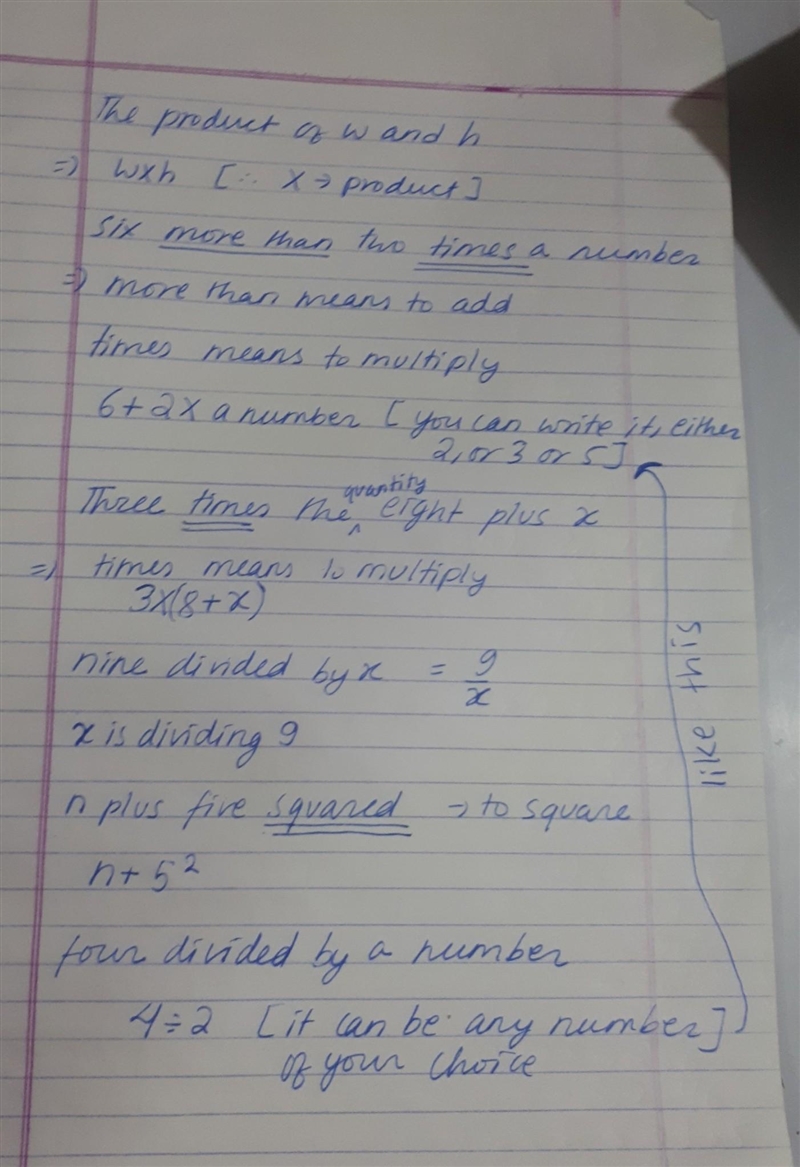 The product of w and h
=> wxh [∵ x → product]
six more than two times a number
=> more than means to add
times means to multiply
6+2x a number [you can write it, either
2, or 3 or 5]
quantity
Three times the ^ eight plus x
=> times means to multiply
3x(8+x)
nine divided by x = 9/x
x is dividing 9
n plus five squared → to square
n+5²
four divided by a number
4÷2 [it can be any number]
of your choice
like this